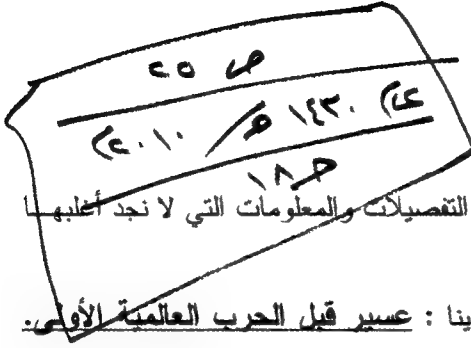 ص ٢٥
١٤٣٠ هـ / ٢٠١٠
ح ١٨
التفصيلات والمعلومات التي لا نجد أغلبهــا
ينا : عسير قبل الحرب العالمية الأولى.